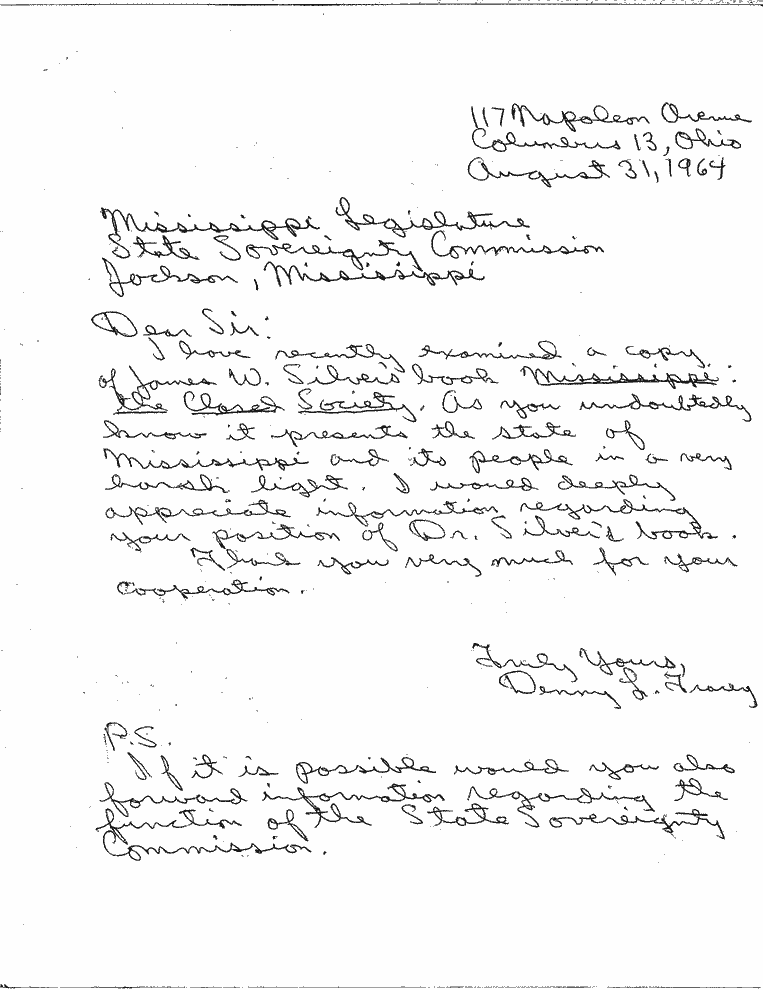 117 Napoleon Avenue
Columbus 13, Ohio
August 31, 1964
Mississippi Legislature
State Sovereignty Commission
Jackson, Mississippi
Dear Sir:
I have recently examined a copy
of James W. Silver's book Mississippi:
the Closed Society. As you undoubtedly
know it presents the state of
Mississippi and its people in a very
harsh light. I would deeply
appreciate information regarding
your position of Dr. Silver's book.
Thank you very much for your
cooperation.
Truly Yours,
Denny L. Tracey
P.S.
If it is possible would you also
forward information regarding the
function of the State Sovereignty
Commission.